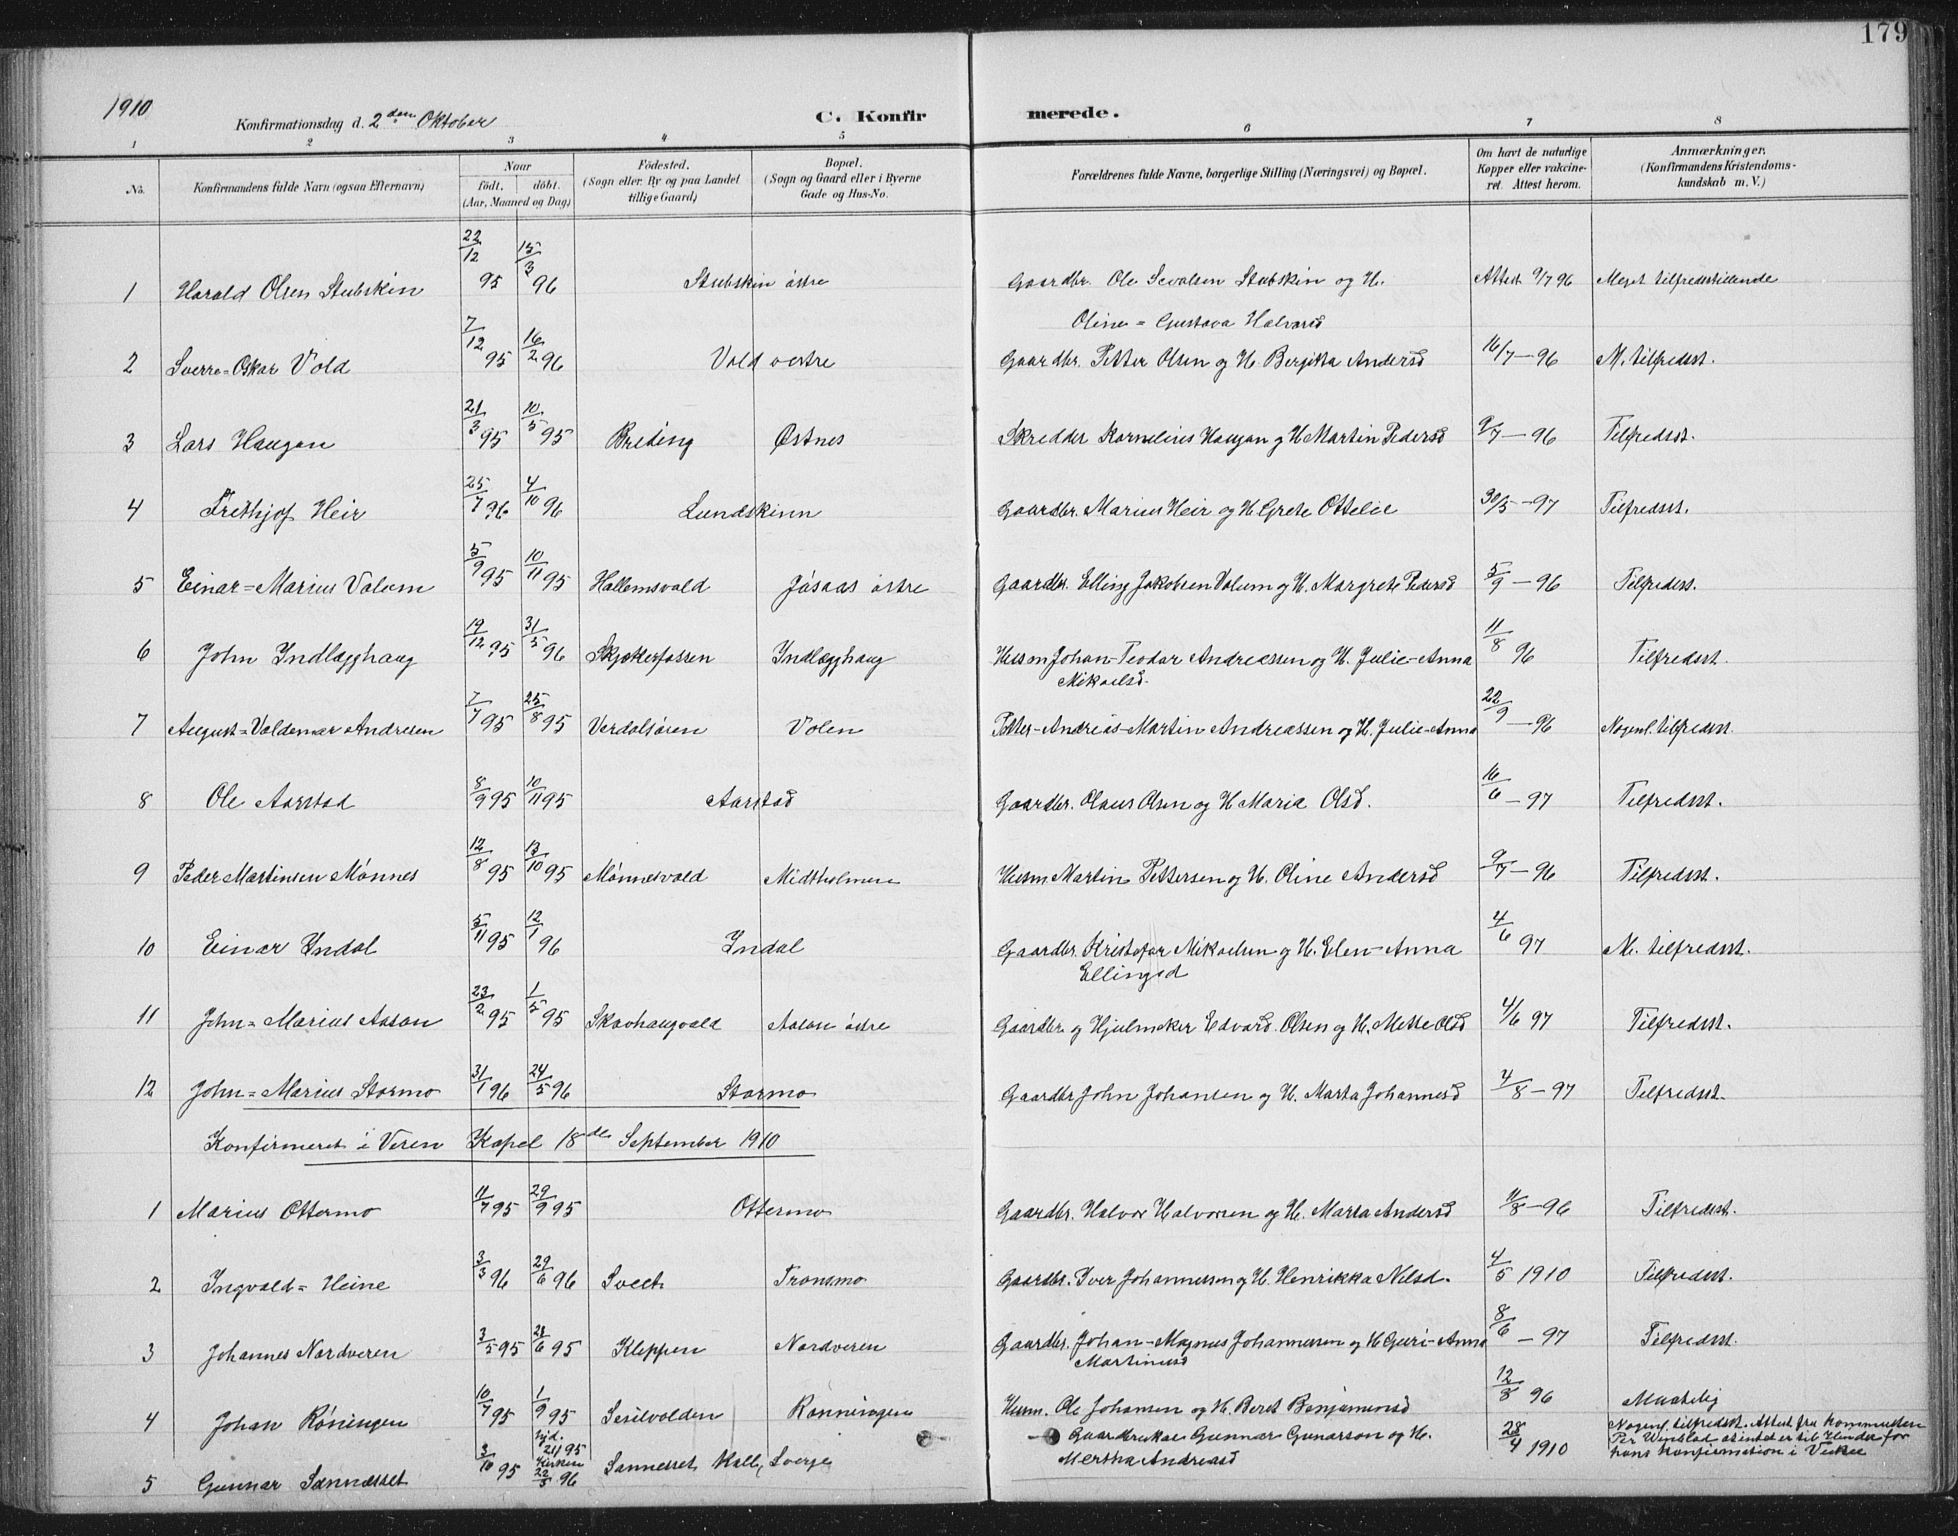 179
1910
Konfirmationsdag d. 2den Oktober
C. Konfirmerede.
1 2 3 4 5 6 7 8
No.
Konfirmandens fulde Navn (ogsaa Efternavn)
Naar
født, døbt.
(Aar, Maaned og Dag)
Födested.
(Sogn eller By og paa Landet
tillige Gaard)
Bopæl.
(Sogn og Gaard eller i Byerne
Gade og Hus-No.
Forældrenes fulde Navne, borgerlige Stilling (Næringsvei) og Bopæl.
Om havt de naturlige
Kopper eller vakcine-
ret. Attest herom.
Anmærkninger.
(Konfirmandens Kristendoms-
kundskab m. V.)
1 Harald Olsen Stubskin 22/12 95 15/3 96 Stubskin østre Gaardbr. Ole Sevalsen Stubskin og H. Attest 9/7 96 Meget tilfredsstillende
Oline=Gustava Halvorsd
2 Sverre=Oskar Vold 7/12 95 16/2 96 Vold vestre Gaardbr. Petter Olsen og H. Bergitta Andersd 16/7-96 M. tilfredsst.
3 Lars Haugan 21/3 95 10/5 95 Breding Østnes Skredder Kornelius Haugan og H. Martin Pedersd 9/7-96 Tilfredsst.
4 Frithjof Heir 25/7 96 4/10 96 Lundskinn Gaardbr. Marius Heir og H. Grete Ottelie 30/5-97 Tilfredsst.
5 Einar=Marius Volum 5/9 95 10/11 95 Hallemsvald Jøsaas østre Gaardbr. Elling Jakobsen Volum og H. Margrete Pedersd 5/9-96 Tilfredsst.
6 John Indlægghaug 19/12 95 31/5 96 Skjækerfossen Indlægghaug Husm Johan-Teodor Andreassen og H. Julie-Anna 11/8 96 Tilfredsst.
Mikaelsd.
7 August=Valdemar Andresen 7/7 95 25/8 95 Verdalsøren Volen Petter-Andreas-Martin Andreassen og H. Julie-Anna 22/9-96 Nogenl. tilfredsst.
8 Ole Aarstad 8/9 95 10/11 95 Aarstad Gaardbr. Olaus Olsen og H Maria Olsd. 16/6-97 Tilfredsst.
9 Peder Martinsen Mønnes 12/8 95 13/10 95 Mønnesvald Midtholmen Husm Martin Pettersen og H. Oline Andersd 9/7-96 Tilfredsst.
10 Einar Indal 5/11 95 12/1 96 Indal Gaardbr. Kristofer Mikaelsen og H. Elen-Anna 4/6 97 M. tilfredsst.
Ellingsd
11 John=Marius Aasan 23/2 95 1/5 95 Skavhaugvald Aasan østre Gaardbr og Hjulmaker Edvard Olsen og H. Mette Olsd 4/6 97 Tilfredsst.
12 John=Marius Stormo 31/1 96 24/5 96 Stormo Gaardbr John Johansen og H. Marta Johannesd 4/8-97 Tilfredsst.
Konfirmeret i Veren Kapel 18de September 1910
1 Marius Ottermo 11/7 95 29/9 95 Ottermo Gaardbr. Halvor Halvorsen og H. Marta Andersd 11/8-96 Tilfredsst.
2 Ingvald=Heine 3/3 96 29/6 96 Sveet Transmo Gaardbr. Iver Johannessen og H. Henrikka Nilsd. 4/5 1910 Tilfredsst.
3 Johannes Nordveren 3/5 95 23/6 95 Kleppen Nordveren Gaardbr. Johan-Magnus Johannessen og H Guri-Anna 8/6-97 Tilfredsst.
Martinusd
4 Johan Røningen 10/7 95 1/9 95 Sesilvolden Rønningen Husm. Ole Johansen og H. Beret Benjaminsd 12/8 96 Maadelig
5 Gunnar Sannesset 3/10 95 hjd. 24 95 Kirken 22/3 96 Sannesset Kall, Sverje Gaardbruker Gunnar Gunarson og H. 28/4 1910 Nogenl. tilfredsst. Attest fra kommunisten
Mertha Andreasd Per Winblad at intet er til Hinder for
hans konfirmation i Vukee